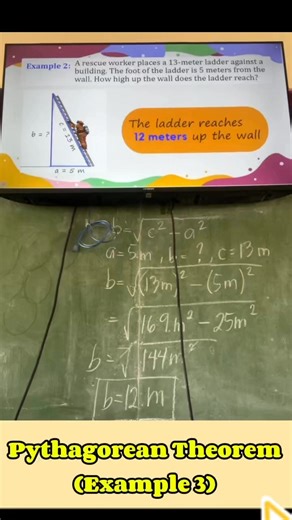 Example 2: A rescue worker places a 13-meter ladder against a
building. The foot of the ladder is 5 meters from the
wall. How high up the wall does the ladder reach?
The ladder reaches
12 meters up the wall
b = ?
c = 13 m
a = 5 m
b = √c² - a²
a = 5m, b = ?, c = 13m
b = √(13m)² - (5m)²
= √169m² - 25m²
b = √144m²
b = 12m
Pythagorean Theorem
(Example 3)